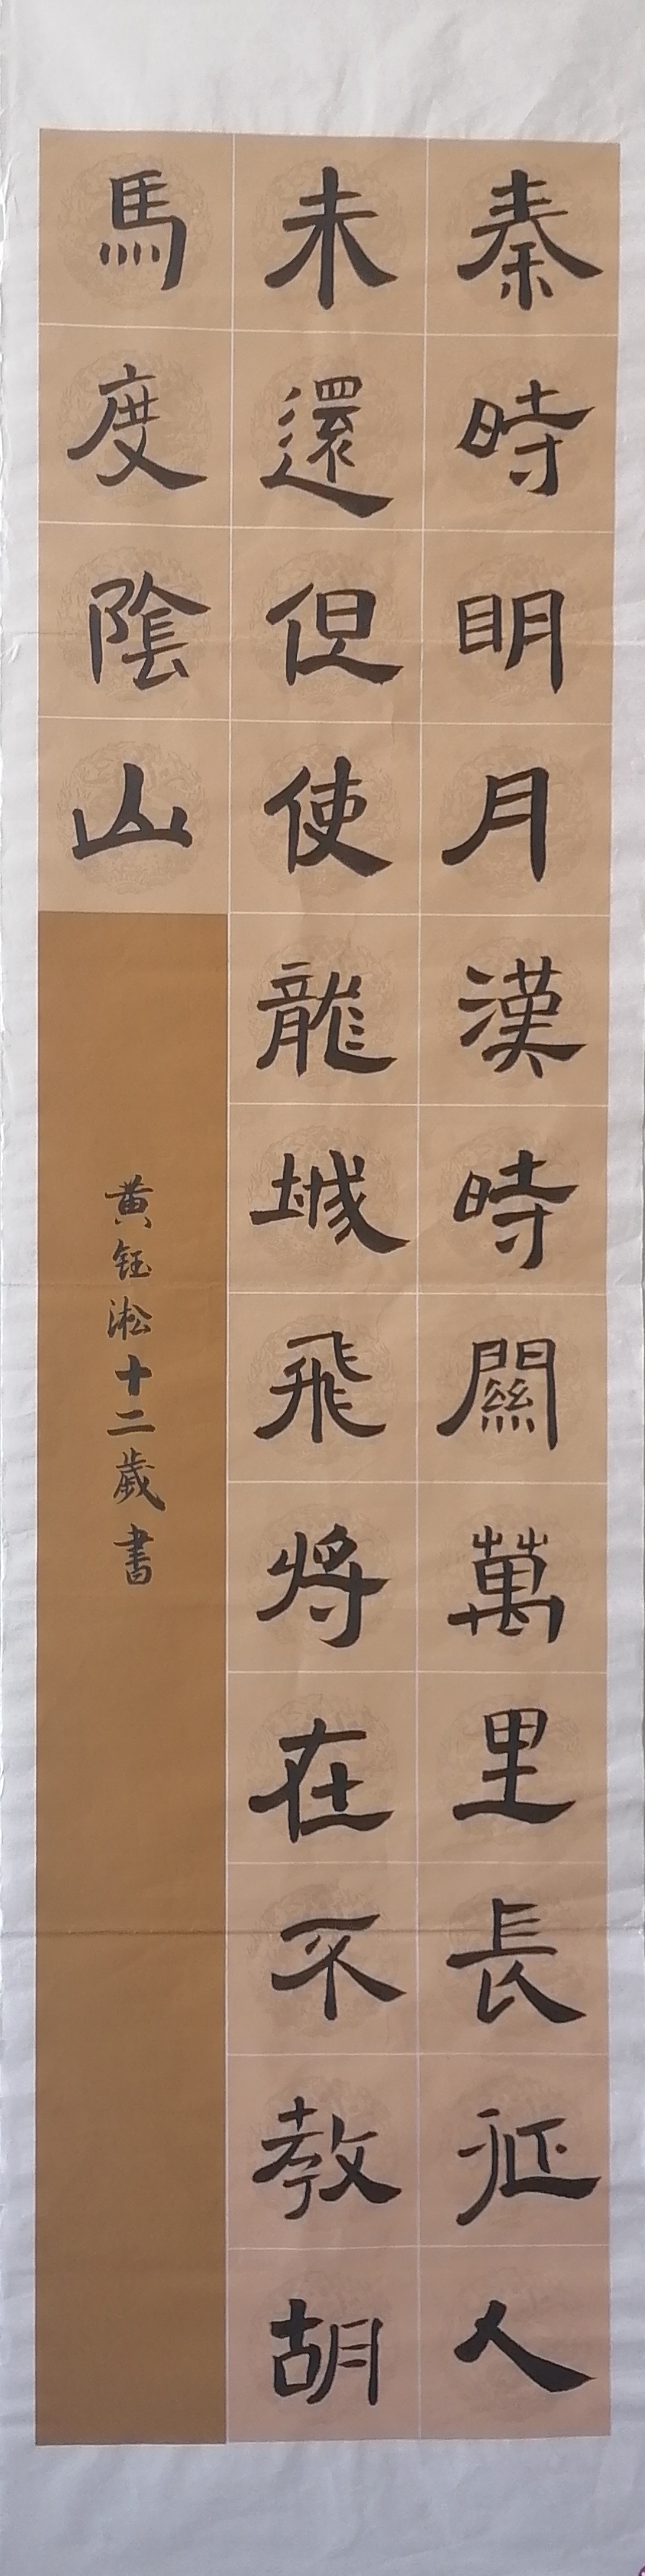 秦時明月漢時關萬里長征人
未還但使龍城飛將在不教胡
馬度陰山
黄钰淞十二歲書